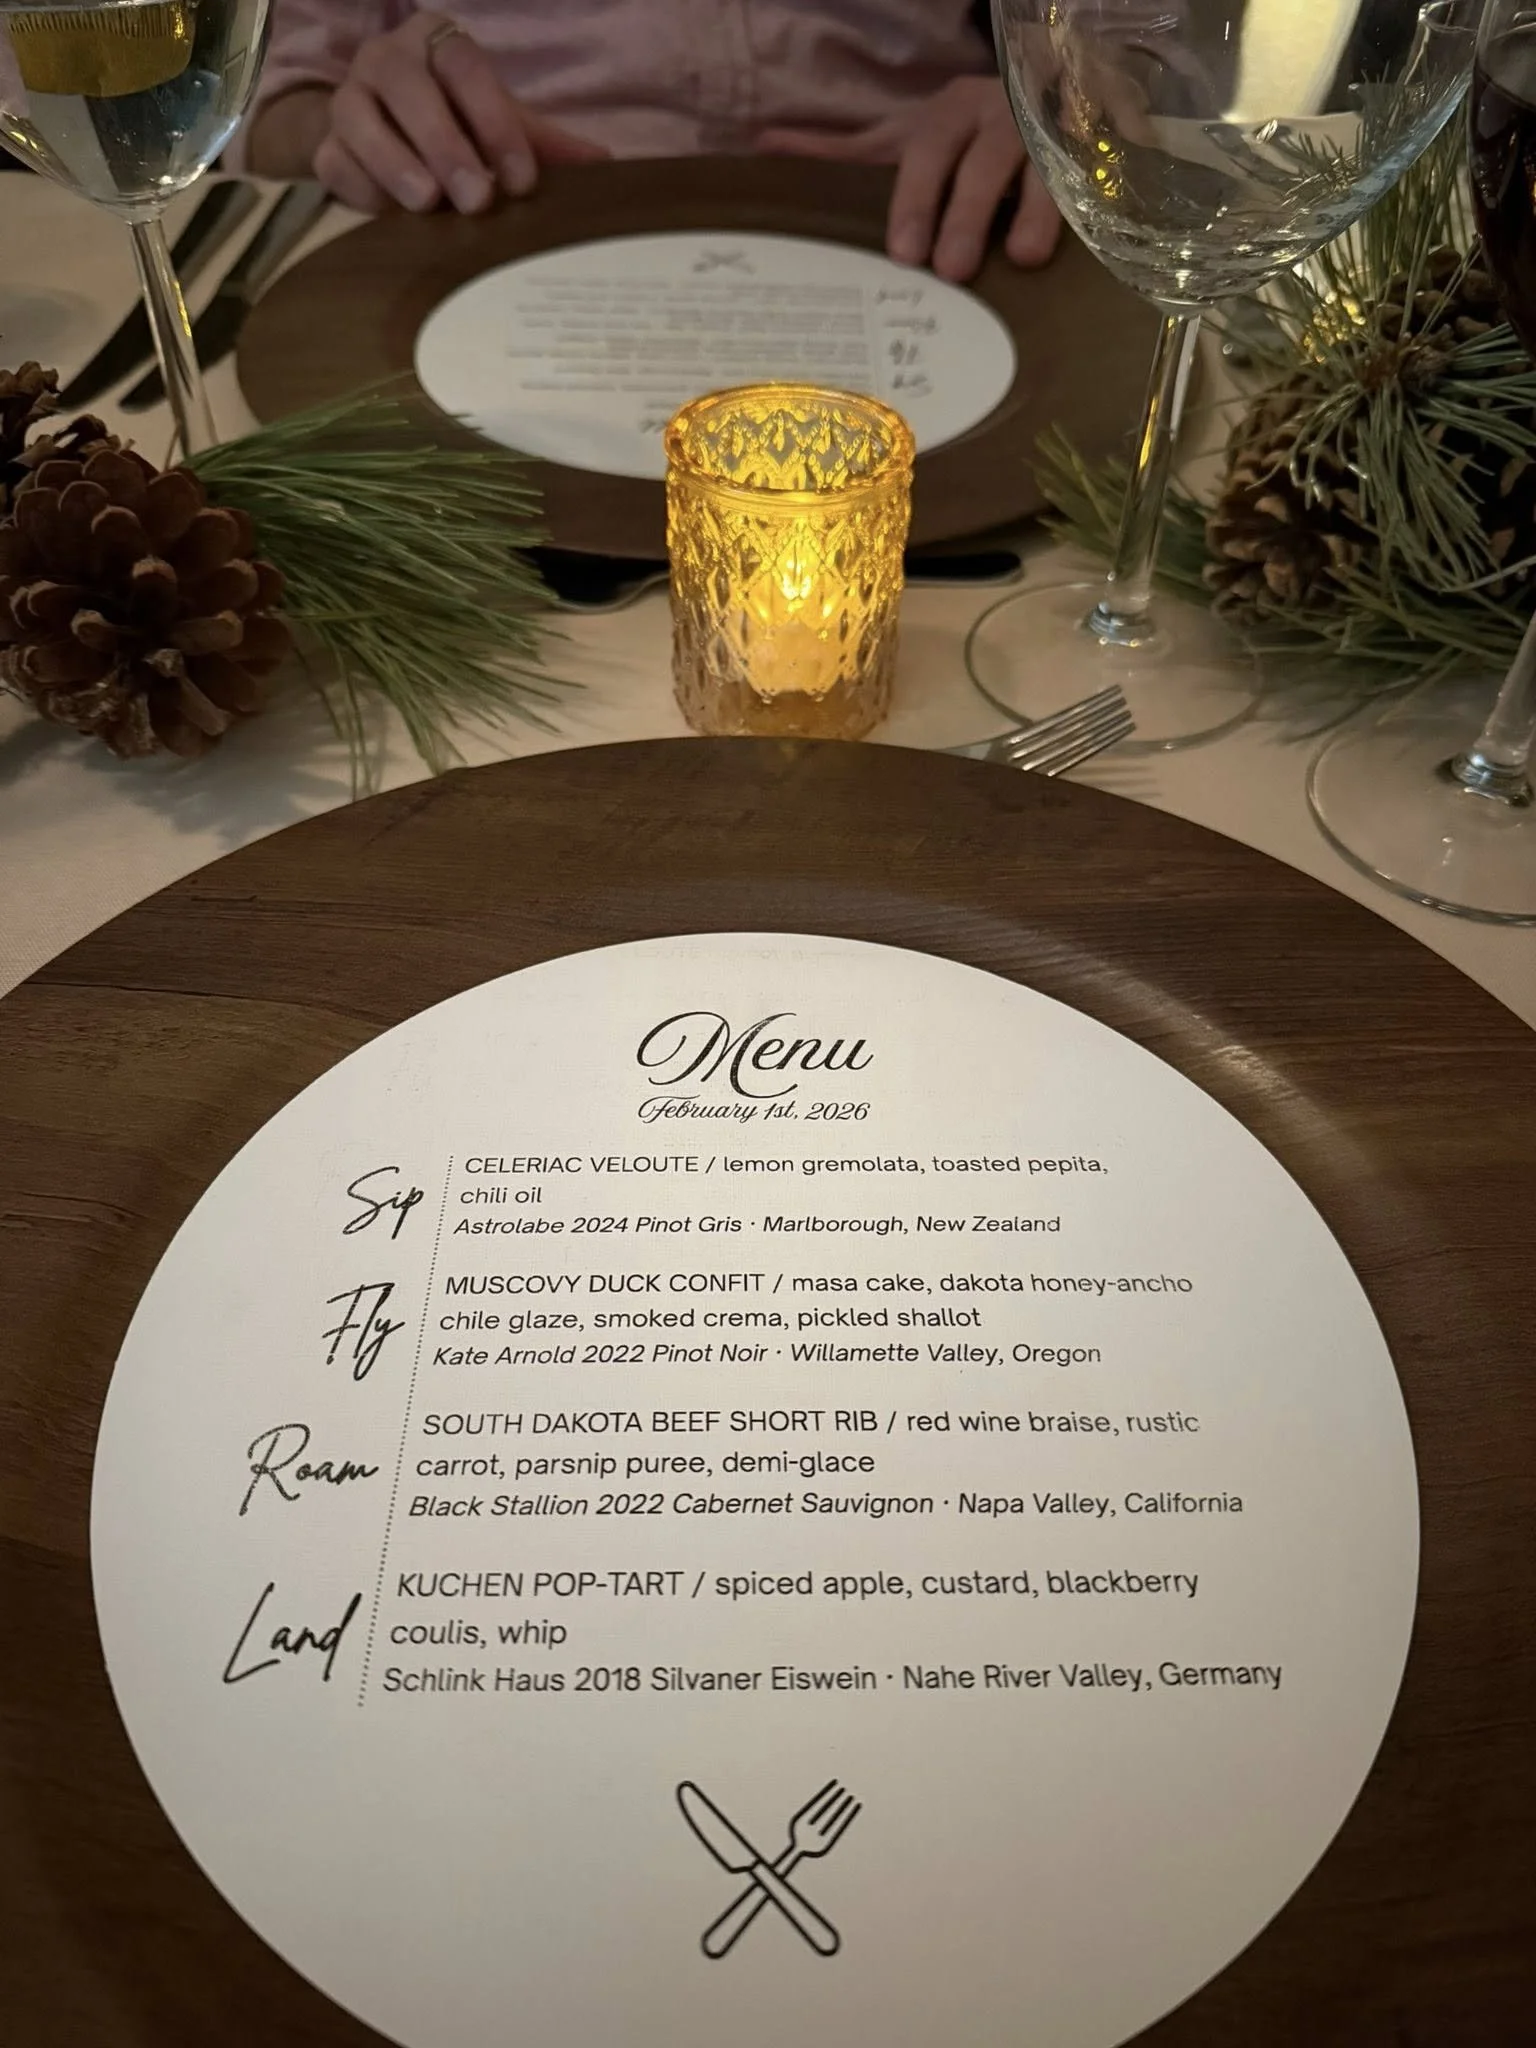 Menu
February 1st, 2026
Sip
CELERIAC VELOUTE / lemon gremolata, toasted pepita,
chili oil
Astrolabe 2024 Pinot Gris · Marlborough, New Zealand
Fly
MUSCOVY DUCK CONFIT / masa cake, dakota honey-ancho
chile glaze, smoked crema, pickled shallot
Kate Arnold 2022 Pinot Noir · Willamette Valley, Oregon
Roam
SOUTH DAKOTA BEEF SHORT RIB / red wine braise, rustic
carrot, parsnip puree, demi-glace
Black Stallion 2022 Cabernet Sauvignon · Napa Valley, California
Land
KUCHEN POP-TART / spiced apple, custard, blackberry
coulis, whip
Schlink Haus 2018 Silvaner Eiswein · Nahe River Valley, Germany